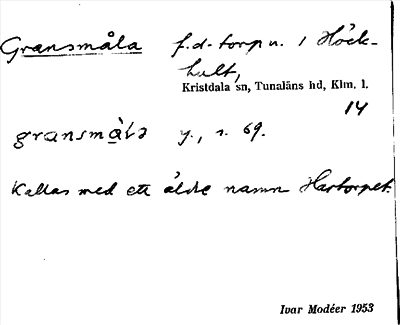 Gransmåla f.d. torp u. 1 Höck-
hult,
Kristdala sn, Tunaläns hd, Klm. l.
14
gransmà̱lə y., s. 69.
Kallas med ett äldre namn Hartorpet.
Ivar Modéer 1953